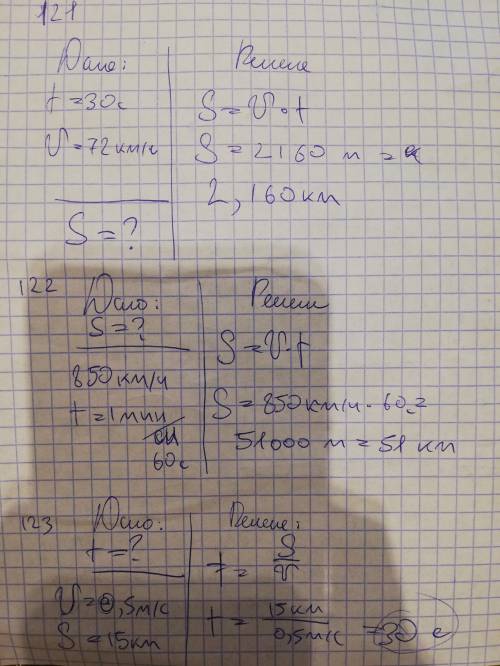 121
Дано:
t=30с
V=72км/ч
S=?
Решение
S=V·t
S=2160 м =
2,160км
122
Дано:
S=?
850км/ч
t=1мин
60с
Решение
S=V·t
S=850км/ч·60с=
51000 м = 51 км
123
Дано:
t=?
V=0,5м/с
S=15км
Решение:
t= S/V
t= 15км/0,5м/с =30 с